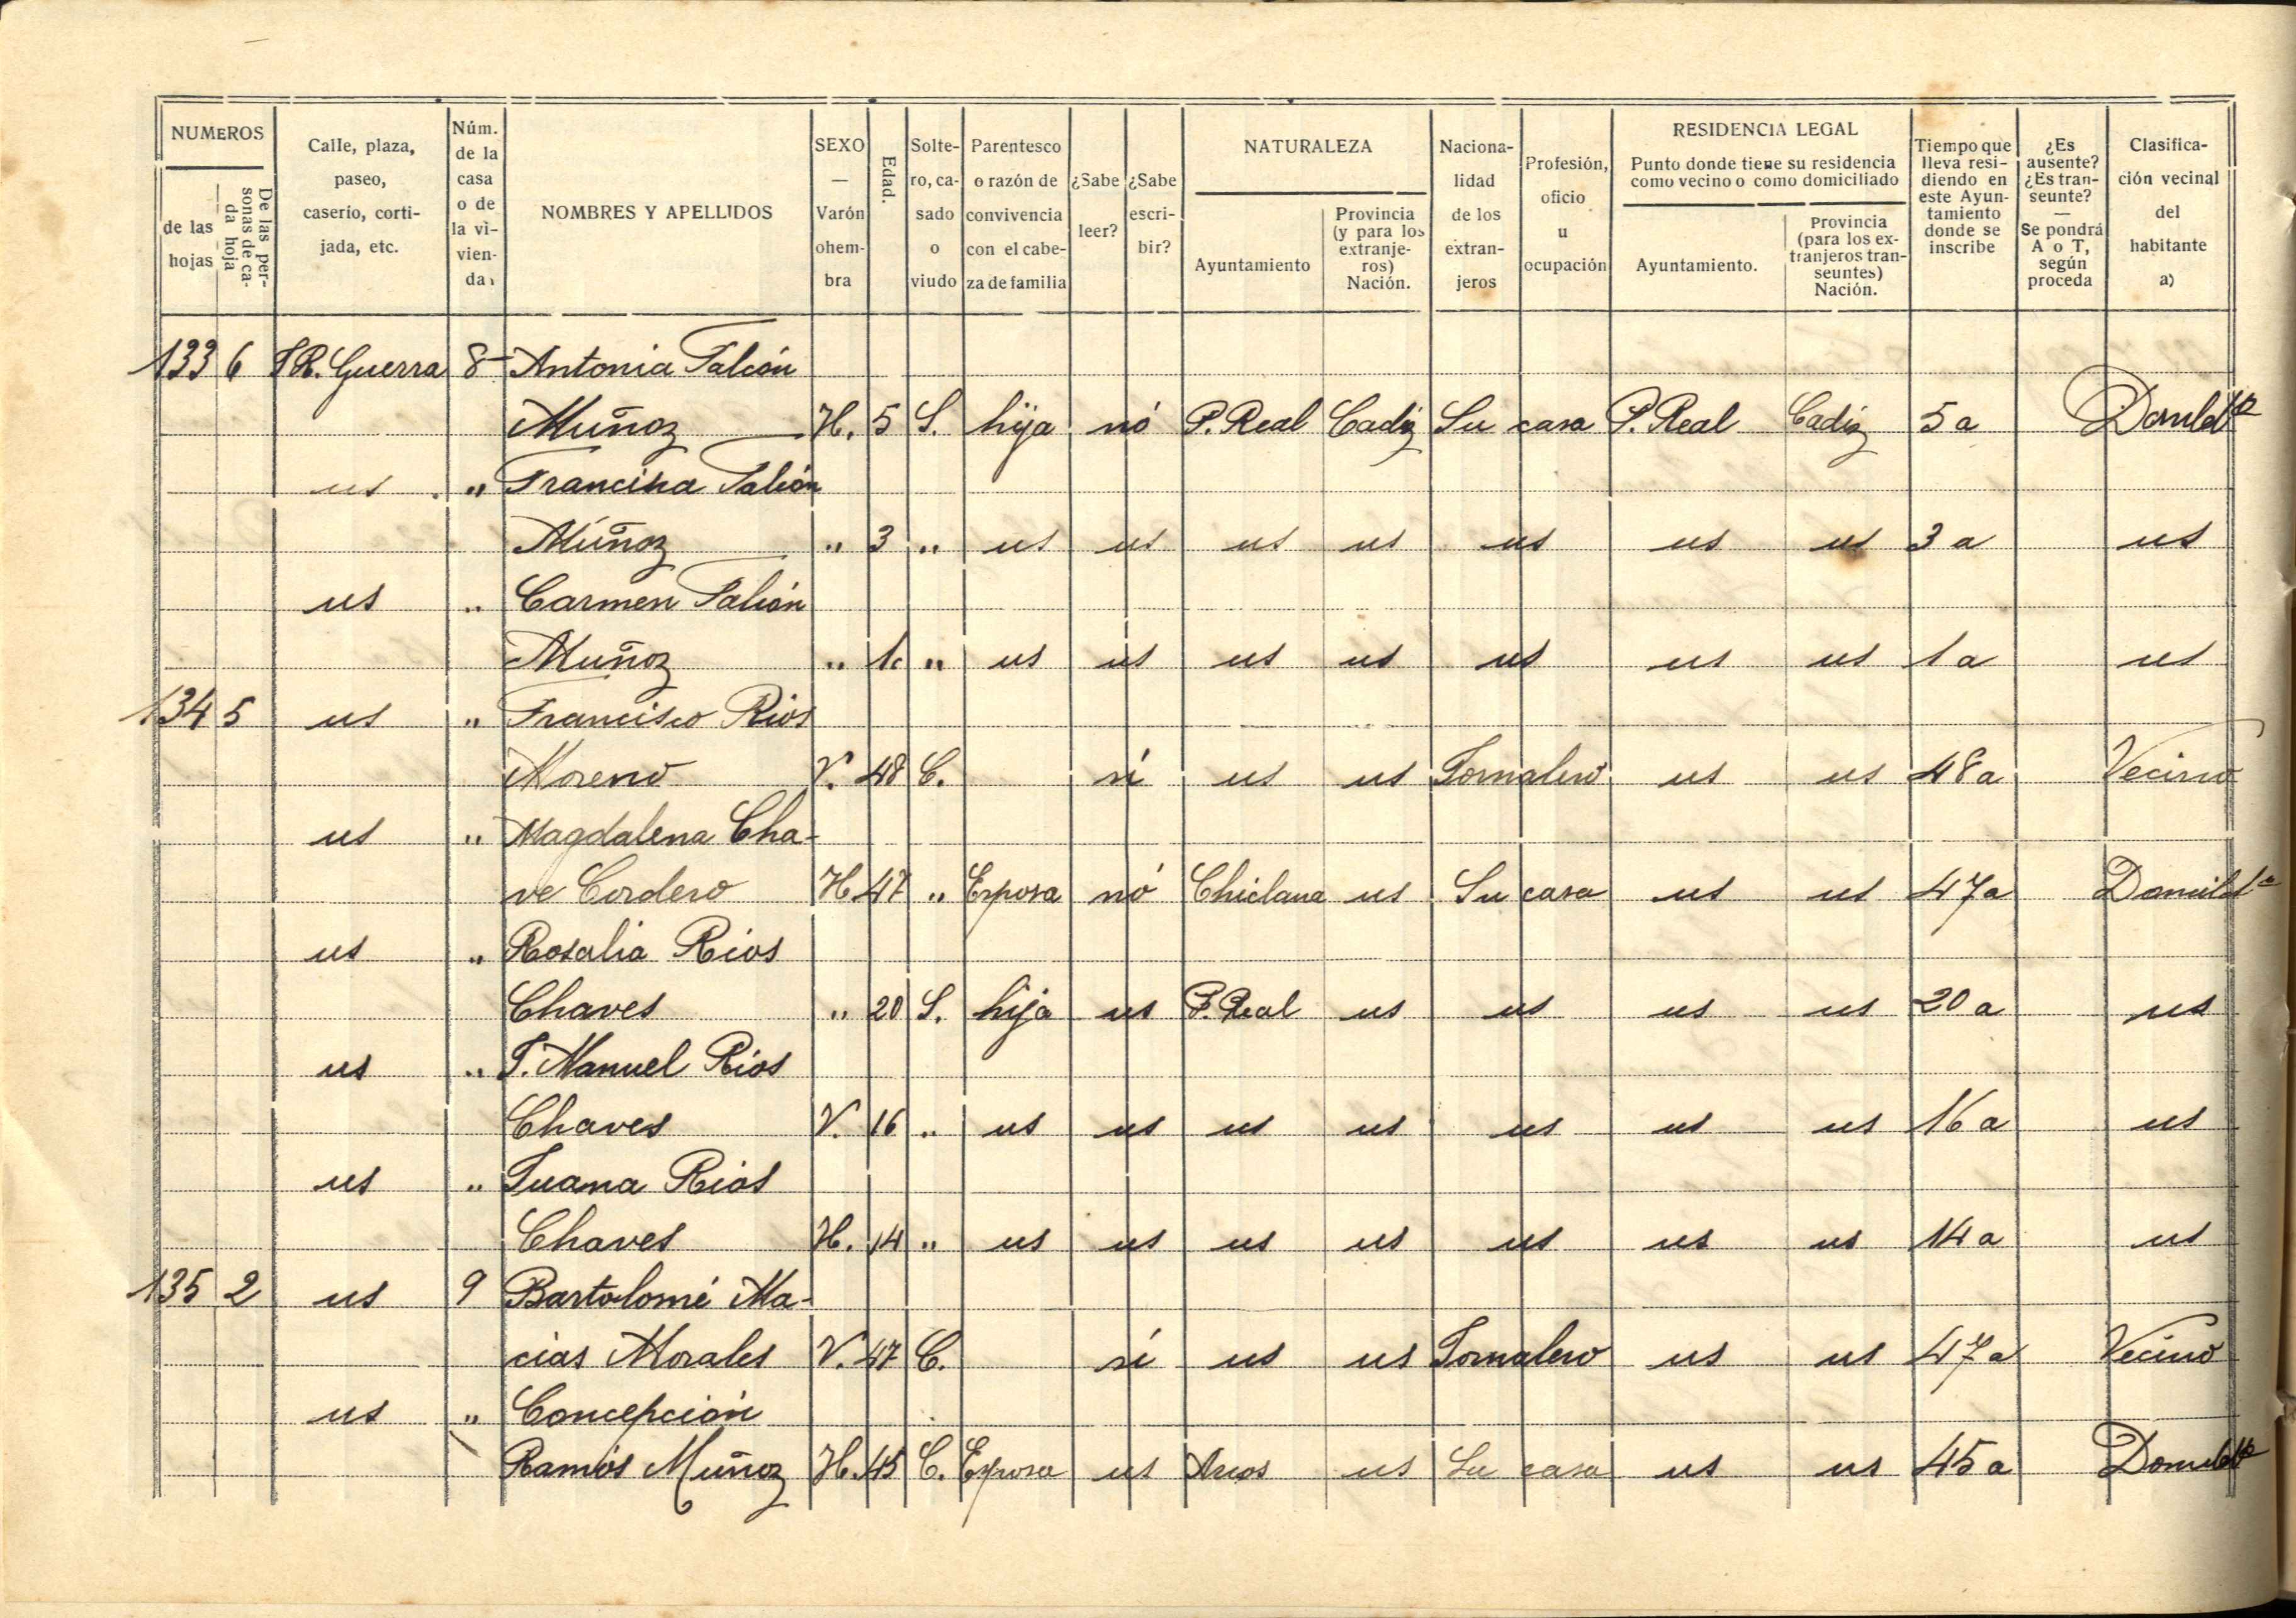 NUMEROS
de las hojas
De las personas de cada hoja
Calle, plaza, paseo, caserío, cortijada, etc.
Núm. de la casa o de la vivienda
NOMBRES Y APELLIDOS
SEXO — Varón ohembra
Edad.
Soltero, casado o viudo
Parentesco o razón de convivencia con el cabeza de familia
¿Sabe leer?
¿Sabe escribir?
NATURALEZA
Ayuntamiento
Provincia (y para los extranjeros) Nación.
Nacionalidad de los extranjeros
Profesión, oficio u ocupación
RESIDENCIA LEGAL
Punto donde tiene su residencia como vecino o como domiciliado
Ayuntamiento.
Provincia (para los extranjeros transeuntes) Nación.
Tiempo que lleva residiendo en este Ayuntamiento donde se inscribe
¿Es ausente? ¿Es transeunte? — Se pondrá A o T, según proceda
Clasificación vecinal del habitante a)
133 6 R. Guerra 8 Antonia Falcón
Muñoz H. 5 S. hija nó P. Real Cadiz Su casa P. Real Cadiz 5 a
us " Francisca Falcón
Muñoz " 3 " us us us us us us us 3 a us
us " Carmen Falcón
Muñoz " 1 " us us us us us us us 1 a us
134 5 us " Francisco Rios
Moreno V. 48 C. sí us us Jornalero us us 48 a Vecino
us " Magdalena Cha-
ve Cordero H. 47 " Esposa nó Chiclana us Su casa us us 47 a
us " Rosalia Rios
Chaves " 20 S. hija us P. Real us us us us 20 a us
us " J. Manuel Rios
Chaves V. 16 " us us us us us us us 16 a us
us " Juana Rios
Chaves H. 14 " us us us us us us us 14 a us
135 2 us 9 Bartolomé Ma-
cias Morales V. 47 C. sí us us Jornalero us us 47 a Vecino
us " Concepción
Ramos Muñoz H. 45 C. Esposa us Arcos us Su casa us us 45 a